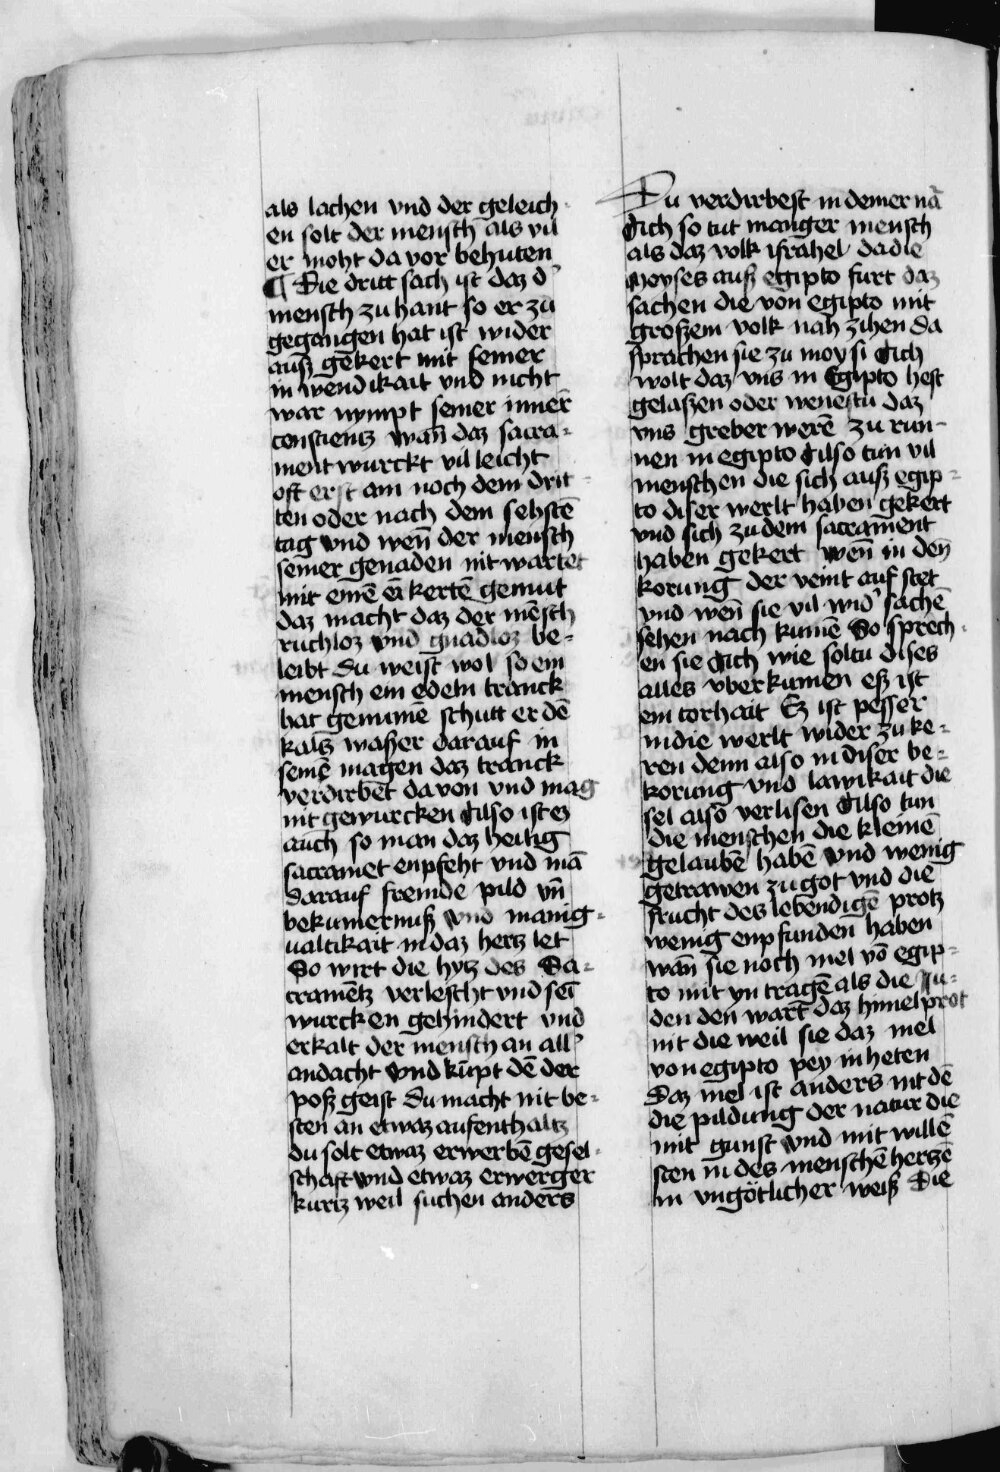 als lachen vnd der geleich
en solt der mensch als vil
er moht da vor behuten
¶ Die dritt sach ist daz d'
mensch zu hant so er zu
gegangen hat ist wider
ausz gekert mit seiner
in wendikait vnd nicht
war nympt seiner inner̄
conscientz wan̄ daz sacra-
ment wurckt vil leicht
oft erst am noch dem drit-
ten oder nach dem sehstē
tag vnd wen̄ der mensch
seiner genaden nit wartet
mit einē ein kertē gemut
daz macht daz der mēsch
ruchloz vnd gnadloz be-
leibt Du weist wol so ein
mensch ein edeln tranck
hat genumē schutt er dē
kaltz waszer darauf in
seinē magen daz tranck
verdirbēt da von vnd mag
nit gewurcken Also ist ez
auch so man daz heilig
sacramēt enpfeht vnd mā
darauf fremde pild vn̄
bekumernusz vnd manig-
ualtikait in daz hertz let
So wirt die hytz des Sa-
cramētz verlescht vnd sein
wurcken gehindert vnd
erkalt der mensch an all'
andacht vnd kūpt dē der
posz geist Du macht nit be-
sten an etwaz aufenthaltz
du solt etwaz erwerbē gesel-
schaft vnd etwaz erwerger
kurtz weil suchen anders
Du verdirbest in deiner nā
Ach so tut manger mensch
als daz volk israhel da die
Moyses ausz egipto furt daz
sachen die von egipto mit
groszem volk nah zihen Da
sprachen sie zu moysi Ach
wolt daz vns in Egipto hest
gelaszen oder wenestu daz
vns greber werē zu run-
nen in egipto Also tun vil
menschen die sich ausz egip-
to diser werlt haben gekert
vnd sich zu dem sacrament
haben gekert wen̄ in den̄
korung der veint auf stet
vnd wen̄ sie vil wid' sachē
sehen nach kumē So sprech-
en sie Ach wie soltu dises
alles vberkumen esz ist
ein torhait Ez ist pesser
in die werlt wider zu ke-
ren denn also in diser be-
korung vnd lawikait die
sel also verlisen Also tun
die menschen die kleinē
gelaubē habē vnd wenig
getrawen zu got vnd die
frucht des lebendigē protz
wenig enpfunden haben
wan̄ sie noch mel vō egip-
to mit yn tragē als die Ju-
den den wart daz himelprot
nit die weil sie daz mel
von egipto pey in heten
Daz mel ist anders nit dē
die pildung der natur die
mit gunst vnd mit willē
sten in des menschē hertzē
in vngötlicher weisz Die